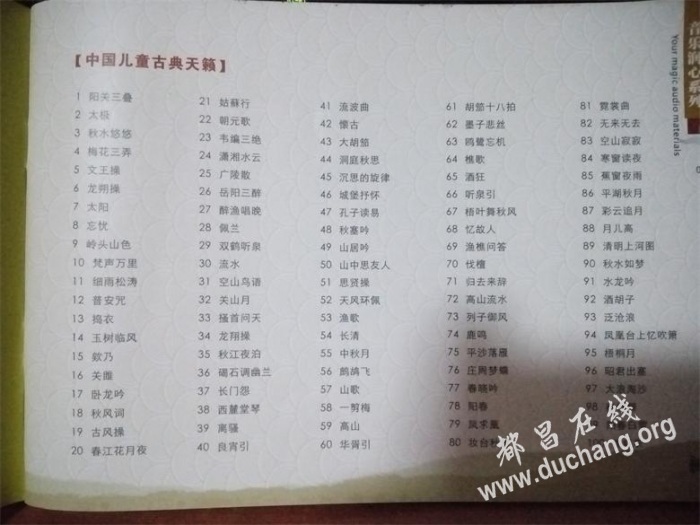 【中国儿童古典天籁】
1 阳关三叠
2 太极
3 秋水悠悠
4 梅花三弄
5 文王操
6 龙朔操
7 太阳
8 忘忧
9 岭头山色
10 梵声万里
11 细雨松涛
12 普安咒
13 捣衣
14 玉树临风
15 欸乃
16 关雎
17 卧龙吟
18 秋风词
19 古风操
20 春江花月夜
21 姑蘇行
22 朝元歌
23 韦编三绝
24 潇湘水云
25 广陵散
26 岳阳三醉
27 醉渔唱晚
28 佩兰
29 双鹤听泉
30 流水
31 空山鸟语
32 关山月
33 搔首问天
34 龙翔操
35 秋江夜泊
36 碣石调幽兰
37 长门怨
38 西麓堂琴
39 离骚
40 良宵引
41 流波曲
42 懷古
43 大胡笳
44 洞庭秋思
45 沉思的旋律
46 城堡抒怀
47 孔子读易
48 秋塞吟
49 山居吟
50 山中思友人
51 思贤操
52 天风环佩
53 渔歌
54 长清
55 中秋月
56 鹧鸪飞
57 山歌
58 一剪梅
59 高山
60 华胥引
61 胡笳十八拍
62 墨子悲丝
63 鸥鹭忘机
64 樵歌
65 酒狂
66 听泉引
67 梧叶舞秋风
68 忆故人
69 渔樵问答
70 伐檀
71 归去来辞
72 高山流水
73 列子御风
74 鹿鸣
75 平沙落雁
76 庄周梦蝶
77 春晓吟
78 阳春
79 凤求凰
80 妆台秋
81 霓裳曲
82 无来无去
83 空山寂寂
84 寒窗读夜
85 蕉窗夜雨
86 平湖秋月
87 彩云追月
88 月儿高
89 清明上河图
90 秋水如梦
91 水龙吟
92 酒胡子
93 泛沧浪
94 凤凰台上忆吹箫
95 梧桐月
96 昭君出塞
97 大浪淘沙
98
音乐润心系列
Your magic audio materials
都昌在线
www.duchang.org